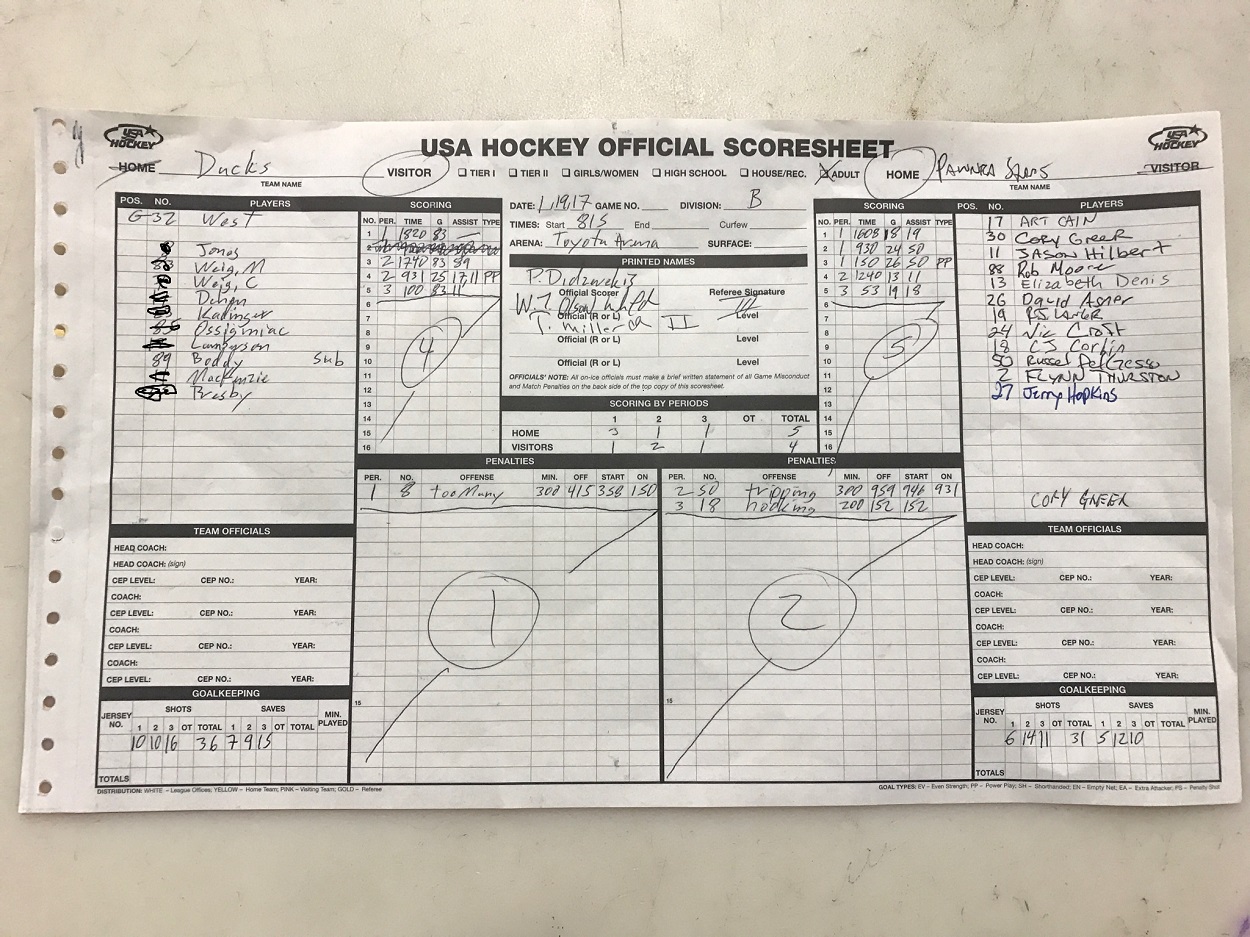 USA HOCKEY
USA HOCKEY OFFICIAL SCORESHEET
USA HOCKEY
HOME Ducks VISITOR
TEAM NAME
TIER I TIER II GIRLS/WOMEN HIGH SCHOOL HOUSE/REC. ADULT
HOME VISITOR
TEAM NAME
POS. NO. PLAYERS
G 32 West
Jonas
Weig, M
Weig, C
Kadinger
89 Boddy Sub
MacKenzie
SCORING
NO. PER. TIME G ASSIST TYPE
1 1 1820 83 —
2
3 2 1740 83 89
4 2 931 25 17,11 PP
5 3 100 83 11
6
7
8
9
10
11
12
13
14
15
16
4
DATE: 1,19,17 GAME NO. DIVISION: B
TIMES: Start 815 End Curfew
ARENA: Toyota Arena SURFACE:
PRINTED NAMES
Official Scorer Referee Signature
W. J. Olson
Official (R or L) Level
T. Miller II
Official (R or L) Level
Official (R or L) Level
OFFICIALS' NOTE: All on-ice officials must make a brief written statement of all Game Misconduct
and Match Penalties on the back side of the top copy of this scoresheet.
SCORING BY PERIODS
1 2 3 OT TOTAL
HOME 3 1 1 5
VISITORS 1 2 1 4
SCORING
NO. PER. TIME G ASSIST TYPE
1 1 1608 18 19
2 1 930 24 50
3 1 150 26 50 PP
4 2 1240 13 11
5 3 53 19 18
6
7
8
9
10
11
12
13
14
15
16
5
POS. NO. PLAYERS
17 ART CAIN
30 CORY GREER
11 JASON Hilbert
88 Rob Moore
13 Elizabeth Denis
26 David Asner
19
24 Vic Croft
18 CJ Corbin
50 Russel
2 FLYNN THURSTON
27 Jerry Hopkins
CORY GREER
PENALTIES
PER. NO. OFFENSE MIN. OFF START ON
1 8 too Many 300 415 358 150
1
15
PENALTIES
PER. NO. OFFENSE MIN. OFF START ON
2 50 tripping 300 959 946 931
3 18 hooking 200 152 152
2
15
TEAM OFFICIALS
HEAD COACH:
HEAD COACH: (sign)
CEP LEVEL: CEP NO.: YEAR:
COACH:
CEP LEVEL: CEP NO.: YEAR:
COACH:
CEP LEVEL: CEP NO.: YEAR:
COACH:
CEP LEVEL: CEP NO.: YEAR:
GOALKEEPING
JERSEY NO. SHOTS SAVES MIN. PLAYED
1 2 3 OT TOTAL 1 2 3 OT TOTAL
10 10 16 36 7 9 15
TOTALS
TEAM OFFICIALS
HEAD COACH:
HEAD COACH: (sign)
CEP LEVEL: CEP NO.: YEAR:
COACH:
CEP LEVEL: CEP NO.: YEAR:
COACH:
CEP LEVEL: CEP NO.: YEAR:
COACH:
CEP LEVEL: CEP NO.: YEAR:
GOALKEEPING
JERSEY NO. SHOTS SAVES MIN. PLAYED
1 2 3 OT TOTAL 1 2 3 OT TOTAL
6 14 11 31 5 12 10
TOTALS
DISTRIBUTION: WHITE – League Offices; YELLOW – Home Team; PINK – Visiting Team; GOLD – Referee
GOAL TYPES: EV – Even Strength; PP – Power Play; SH – Shorthanded; EN – Empty Net; EA – Extra Attacker; PS – Penalty Shot